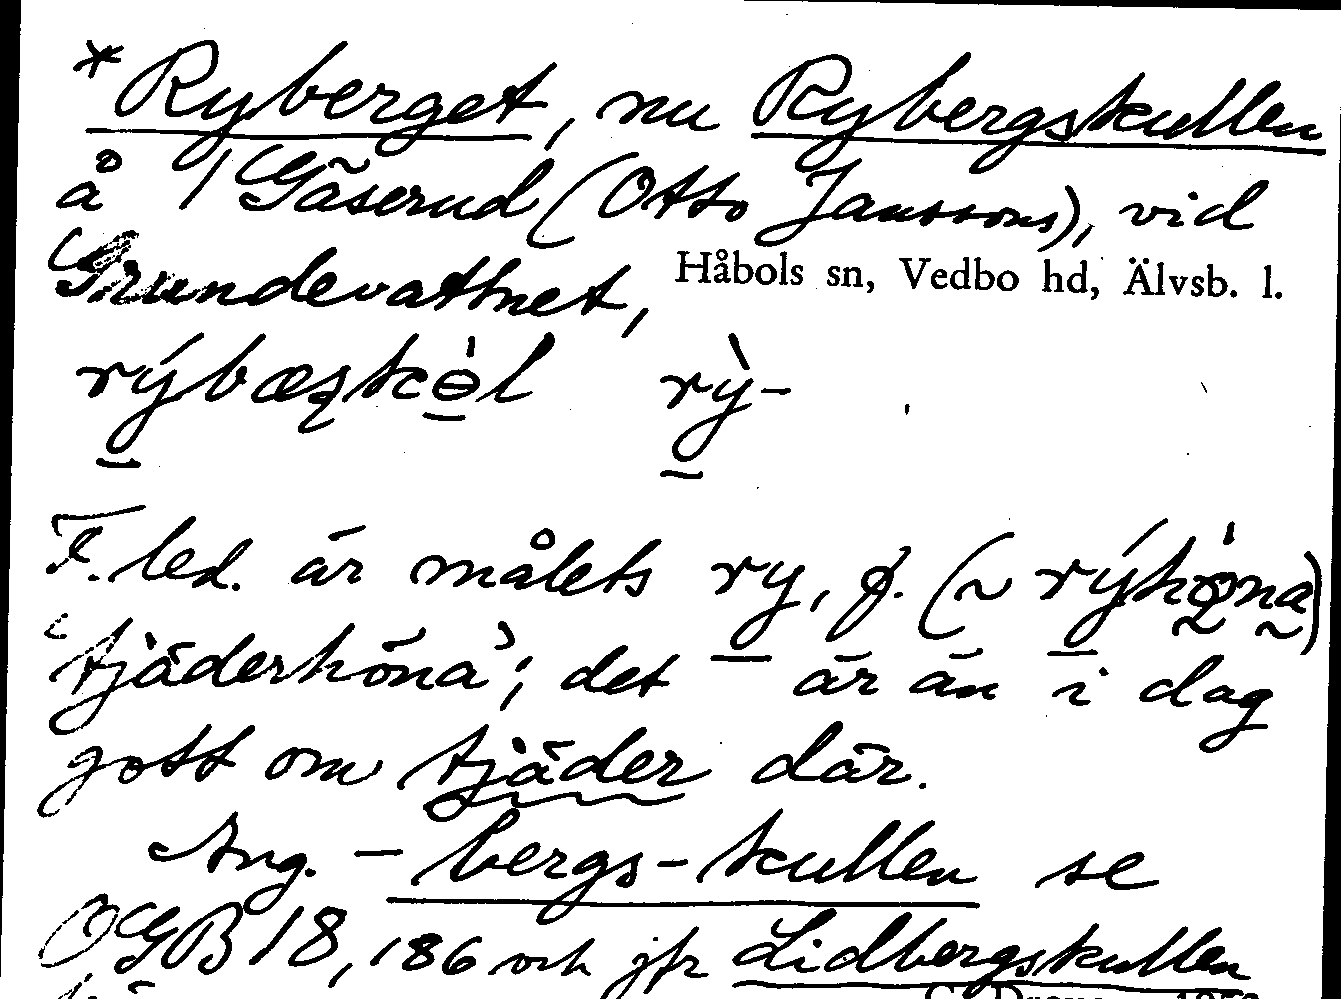 *Ryberget, nu Rybergskullen
å 1 Gäserud (Otto Janssons), vid
Grundevattnet, Håbols sn, Vedbo hd, Älvsb. l.
rý- 
F. led. är målets ry, f. (~ rýhöna)
'tjäderhöna'; det är än i dag
gott om tjäder där.
Ang. -bergs-kullen se
OGB 18, 186 och jfr Lidbergskullen